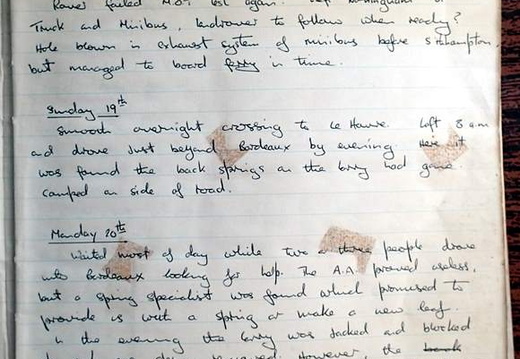 Rover failed M.O.T. test again. Left
Truck and Minibus, landrover to follow when ready?
Hole blown in exhaust system of minibus before Southampton,
but managed to board ferry in time.
Sunday 19th
Smooth overnight crossing to Le Havre. Left 8 a.m
and drove just beyond Bordeaux by evening. Here it
was found the back springs on the lorry had gone.
Camped on side of road.
Monday 20th
Waited most of day while two or three people drove
into Bordeaux looking for help. The A.A. proved useless,
but a spring specialist was found which promised to
provide us with a spring or make a new leaf.
In the evening the lorry was jacked and blocked
However, the